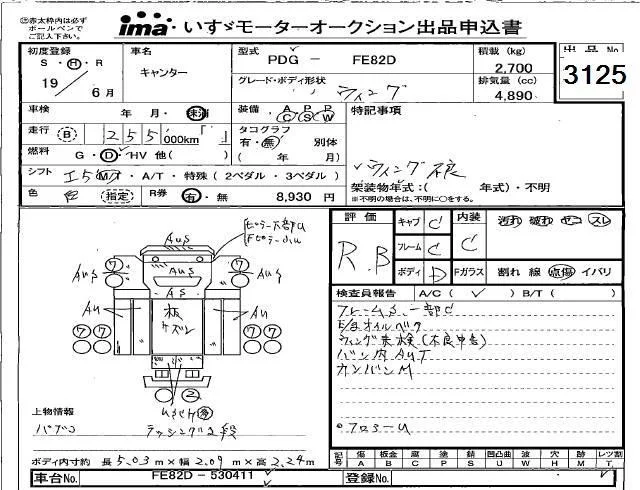 ㊟赤太枠内は必ず
ボールペンで
ご記入下さい。
ima いすゞモーターオークション出品申込書
初度登録 車名 型式 PDG - FE82D 積載 (kg) 出品No
S・H・R キャンター 2,700
19 6月 グレード・ボディ形状 ウィング 排気量 (cc) 3125
4,890
車検 年 月・未満 装備 A P P C S W 特記事項
走行 B 255,000km「 」 タコグラフ
有・無 別体
燃料 G・D・HV 他( ) ( 年 月)
シフト I5 M/T・A/T・特殊 (2ペダル・3ペダル) ウィング 架装物年式:( 年式)・不明
※不明の場合は、不明に○をする。
色 指定 R券 有・無 8,930 円
評価 キャブ C 内装 汚れ 破れ ヤコ スレ
R.B フレーム C C
ボディ D Fガラス 割れ 線 点傷 イバリ
検査員報告 A/C( ✓ ) B/T( )
フレームS 一部C
E/gオイルベタ
ウィング未検(不良申告)
バン内AUT
カンバンM
フロアーU
Aus
Aus
AS
Aus Aug
Au Au
板
⑦ ⑦
⑦⑦ ⑦⑦
②
上物情報
パブコ ラッシング2段
ボディ内寸約 長 5.03 m×幅 2.09 m×高 2.24 m
記号 傷 板金 腐 塗 錆 凹凸曲 波 穴 跡 レツ割
A B C P S U W H M T
車台No. FE82D - 530411 登録No.